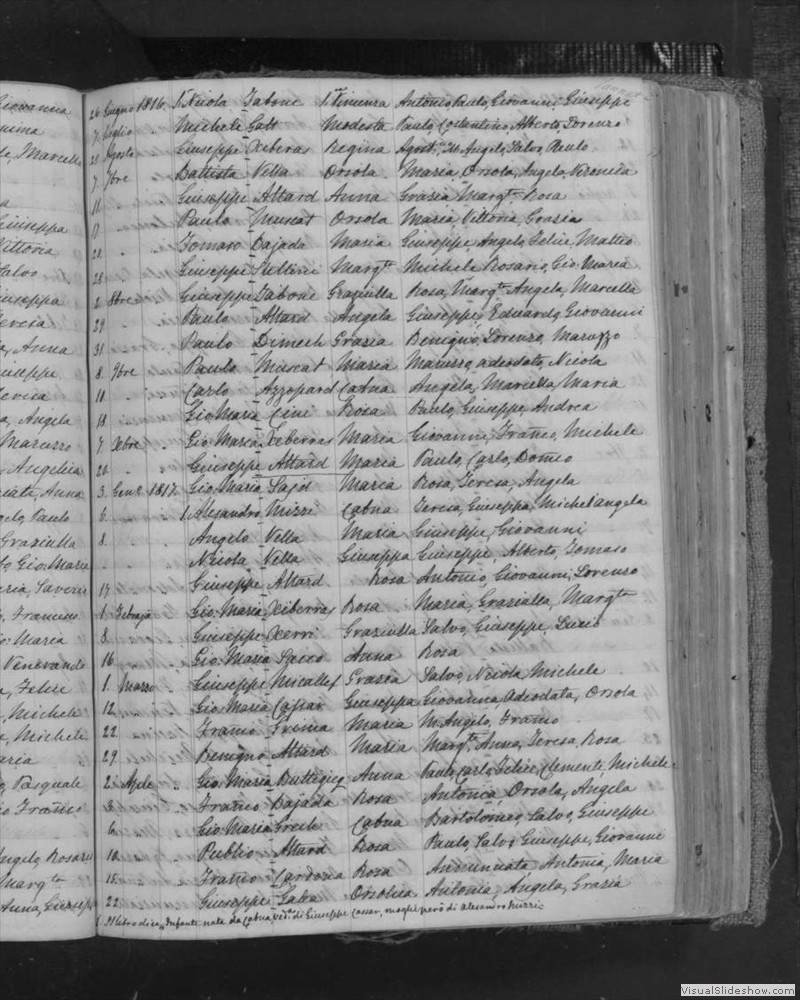 Giovanna
Marcello
Giuseppa
Vittoria
Salvo
Giuseppa
Teresa
Anna
Giuseppe
Angela
Maruzzo
Angelica
Anna
Angelo, Paulo
Graziulla
Gio: Maria
Francesco
Gio: Maria
Venerande
Felice
Michele
Michele
Maria
Pasquale
Franco
Angelo, Rosario
Margta
Anna, Giuseppe
26 Giugno 1816. Nicola Tabone Vincenza Antonio Paulo, Giovanni, Giuseppe
7 Luglio Michele Galt Modesta Paulo, Costantino, Alberto, Lorenzo
28 Agosto Giuseppe Xeberas Regina Angelo, Salvo, Paulo
7 7bre Battista Vella Orsola Maria, Orsola, Angela, Veronica
11 Giuseppe Attard Anna Grazia, Margta Rosa
Paulo Muscat Orsola Maria, Vittoria, Grazia
20 Tomaso Bajada Maria Giuseppe, Angelo, Felice, Matteo
28 Giuseppe Stellini Margta Michele Rosario, Gio: Maria
2 8bre Giuseppe Tabone Graziulla Rosa, Margta Angela, Marcella
29 Paulo Attard Angela Giuseppe, Eduardo, Giovanni
31 Paulo Dimech Grazia Benigno, Lorenzo, Maruzzo
8 9bre Paulo Muscat Maria Maruzzo, adeodato, Nicola
10 Carlo Azzopard Catna Angela, Mariella, Maria
18 Gio: Maria Cini Rosa Paulo, Giuseppe, Andrea
7 Xbre Gio: Maria Xeberras Maria Giovanni, Franco, Michele
20 Giuseppe Attard Maria Paulo, Carlo, Domco
3 Genro 1817 Gio: Maria Sajd Maria Rosa, Teresa, Angela
6 Alesandro Mizzi Catna Teresa, Giuseppa, Michelangela
8 Angelo Vella Maria Giuseppe, Giovanni
Nicola Vella Giuseppa Giuseppe, Alberto, Tomaso
17 Giuseppe Attard Rosa Antonio, Giovanni, Lorenzo
1 Febrajo Gio: Maria Xiberras Rosa Maria, Grazialla, Margta
8 Giuseppe Xerri Graziulla Salvo, Giuseppe, Lucio
16 Gio: Maria Sacco Anna Rosa
1 Marzo Giuseppe Micallef Grazia Salvo, Nicola, Michele
12 Gio: Maria Cassar Giuseppa Giovanna, adeodata, Orsola
22 Franco Grima Maria M. Angelo, Franco
29 Benigno Attard Maria Margta, Anna, Teresa, Rosa
2 Aple Gio: Maria Buttegieg Anna Paulo, Carlo, Felice, Clemente, Michele
3 Franco Bajada Rosa Antonia, Orsola, Angela
6 Gio: Maria Grech Catna Bartolomeo, Salvo, Giuseppe
10 Publio Attard Rosa Paulo, Salvo, Giuseppe, Giovanni
15 Franco Cardona Rosa Annunciata, Antonia, Maria
22 Giuseppe Saba Orsolica Antonia, Angela, Grazia
Il libro dice, Infante nata da Catna Veda di Giuseppe Cassar, moglie però di Alesandro Mizzi
VisualSlideshow.com